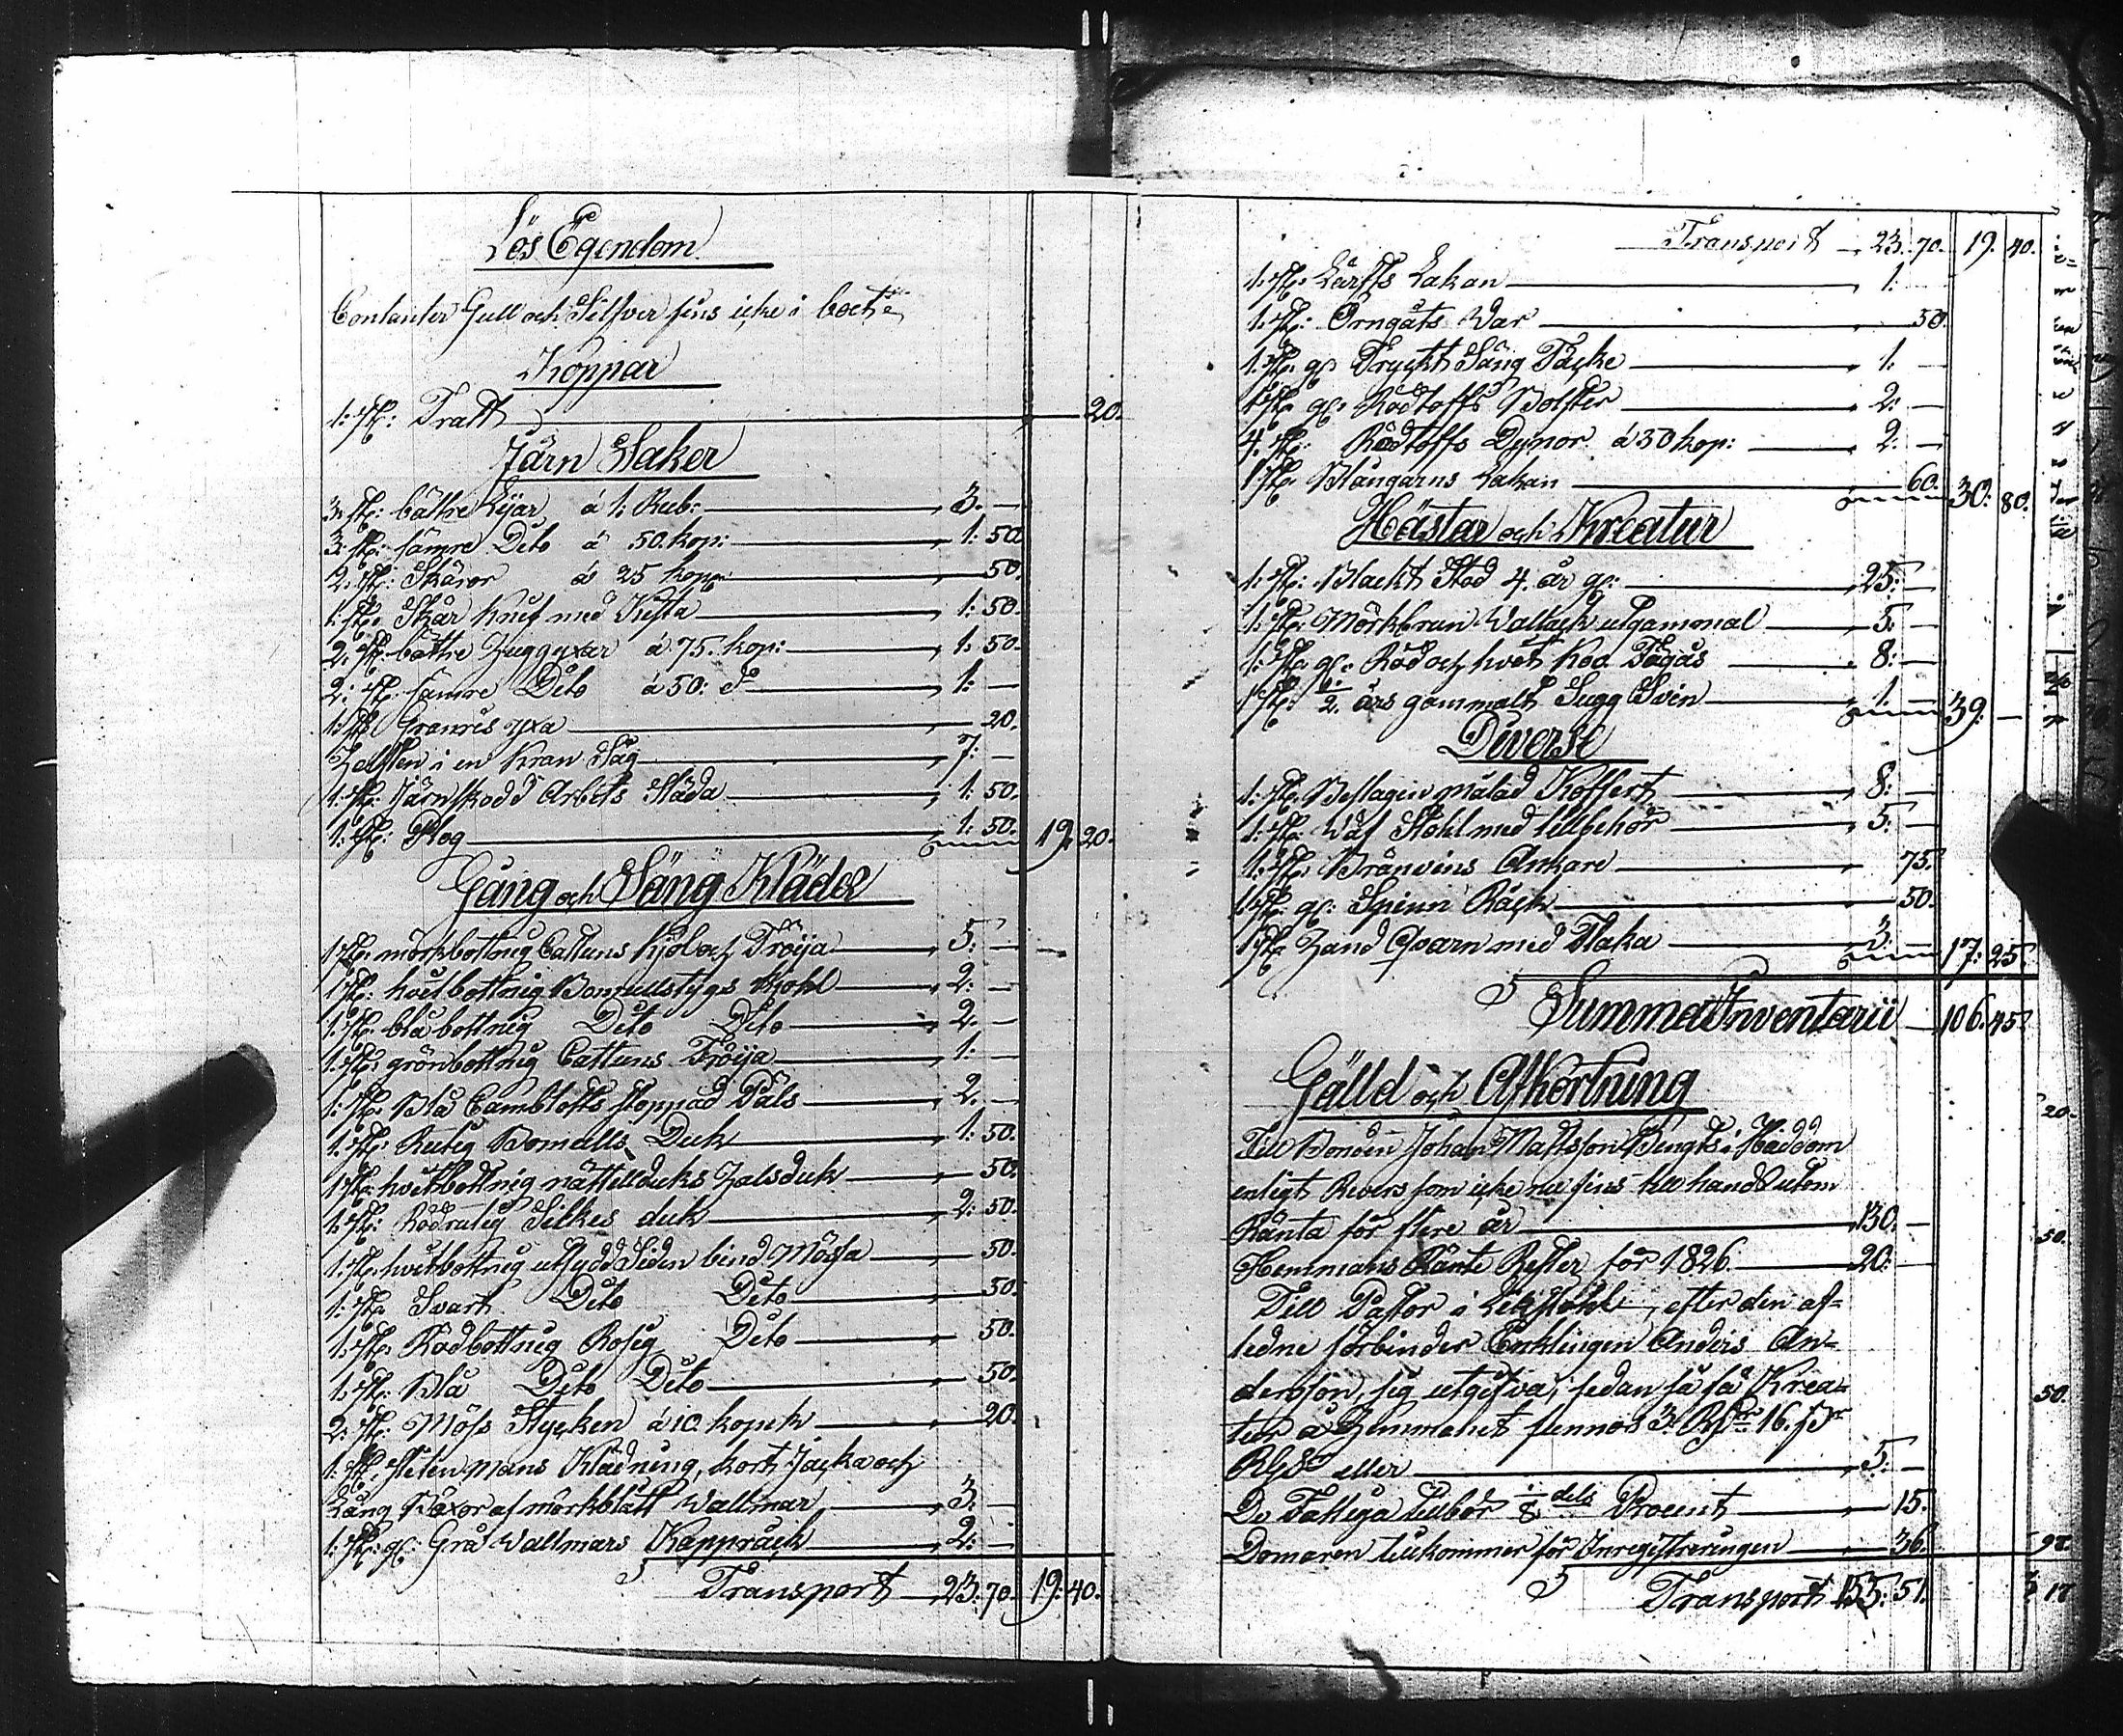 Lös Egendom
Contanter Gull och Silfver fins icke i boet
Koppar
1: st: Tratt 20.
Järn Saker
3: st: bättre Lijar á 1: Rub: 3. —
3: st: sämre Dito á 50. kop: 1: 50.
2. st: Skäror á 25 kop: 50.
1: st: Skär knif med Kista 1: 50.
2: st: bättre Huggyxar á 75. kop: 1: 50.
2: st: sämre Dito á 50: d 1: —
1: st: Granris yxa 20.
Helften i en Kran Såg 7: —
1: st: Järnskodd Arbets Släda 1: 50.
1: st: Plog 1: 50. 19. 20.
Gång och Säng Kläder
1 st: mörkbottnig Cattuns Kjol och Tröija 5: —
1 st: hvitbottnig Bomullstygs Kjohl 2: —
1: st: blåbottnig Dito Dito 2. —
1: st: grönbottnig Cattuns Tröija 1: —
1: st: Blå Camblotts stoppad Päls 2. —
1: st: Rutig Bomulls Duk 1: 50.
1 st: hvitbottnig nättelduks Halsduk 50.
1: st: Rödrutig Silkes duk 2: 50.
1: st: hvitbottnig utsydd Siden bind Mössa 50.
1: st: Svart Dito Dito 50.
1: st: Rödbottnig Rosig Dito 50.
1: st: Blå Dito Dito 50.
2: st: Möss Stycken á 10. kopek 20.
1: st: sliten mans Klädning, kort Jacka och
Lång Böxor af mörkblått Wallmar 3. —
1: st: gl: Grå Wallmars Kappråck 2: —
Transport 23: 70. 19: 40.
Transport 23. 70. 19. 40.
1: st: Lärfts Lakan 1: —
1: st: Örngåts War 50.
1: st: gl: Tryckt Säng Täcke 1. —
1 st: gl: Rödtofts Bolster 2: —
4. st: Rödtofts Dynor á 50 kop: 2: —
1 st: Blångarns Lakan 60. 30: 80.
Hästar och Kreatur
1: st: Blackt Stod 4. år gl: 25: —
1: st: Mörkbrun Wallack utgammal 5: —
1: st: gl: Röd och hvit Koo Fägås 8: —
1 st: 1/2. års gammalt Sugg Svin 1: — 39: —
Diverse
1: st: Beslagen målad Koffert 8: —
1: st: Wäf Stohl med tillbehör 5: —
1: st: Bränvins Ankare 75.
1: st: gl: Spinn Råck 50.
1 st: Hand Qvarn med Flaka 3: — 17: 25.
Summa Inventarii 106. 45.
Gälld och Afkortning
Till Bonden Johan Mattsson Bengts i Haddom
enligt Revers som icke nu fins till hands utom
Ränta för flere år 130: —
Hemmans Ränte Rester för 1826. 20: —
Till Pastor i Likstohl, efter den af-
ledne förbinder Enklingen Anders An-
dersson, sig utgifva, sedan så få Krea-
tur å Hemmanet funnos 3. 16.
eller 5: —
De Fattiga tillbör 1/8 dels Procent 15.
Domaren tillkommer för Inregistreringen 36.
Transport 155: 51.